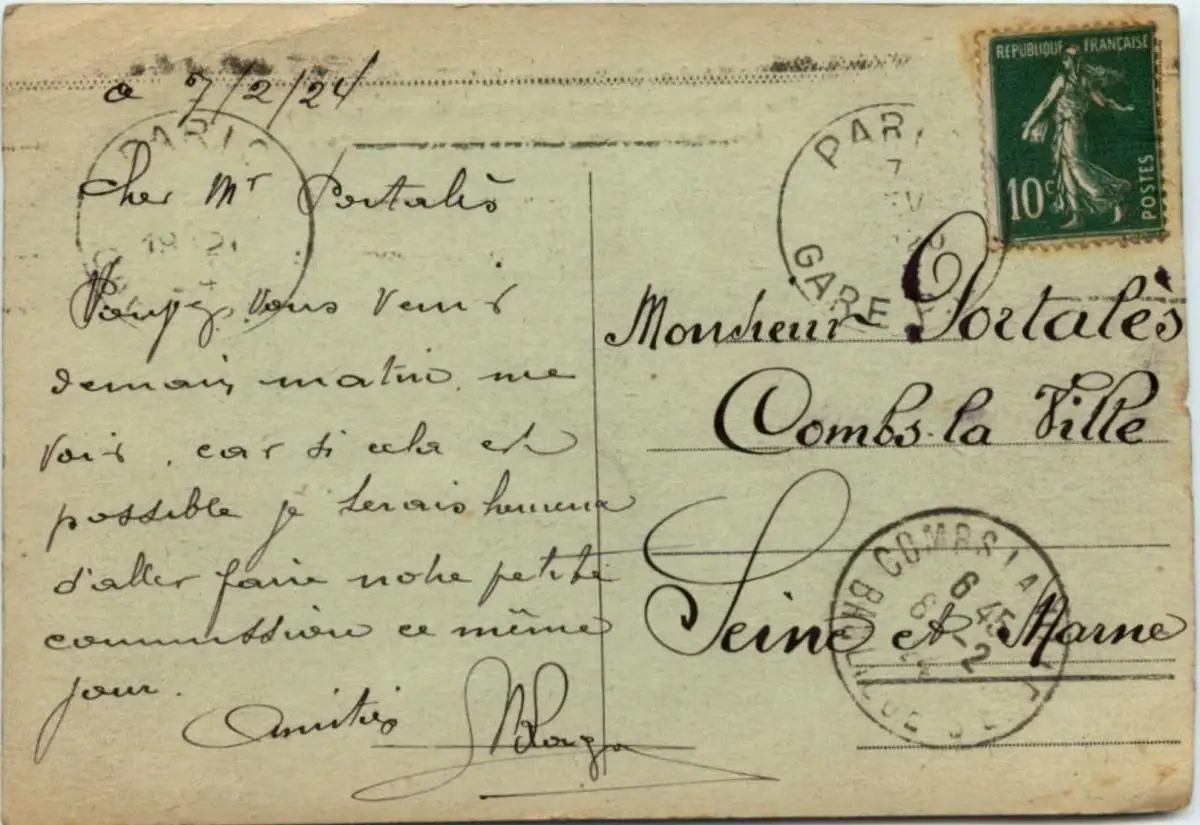 a 7/2/24
Cher Mr Portalès
Pouvez vous venir
demain matin, me
voir, car si cela est
possible je serais heureux
d'aller faire notre petite
commission ce même
jour.
Amitiés
REPUBLIQUE FRANÇAISE
10c
POSTES
PARI
7
GARE
Monsieur Portalès
Combs-la Ville
Seine et Marne
COMBS LA
6 45
8 -2
PARIS